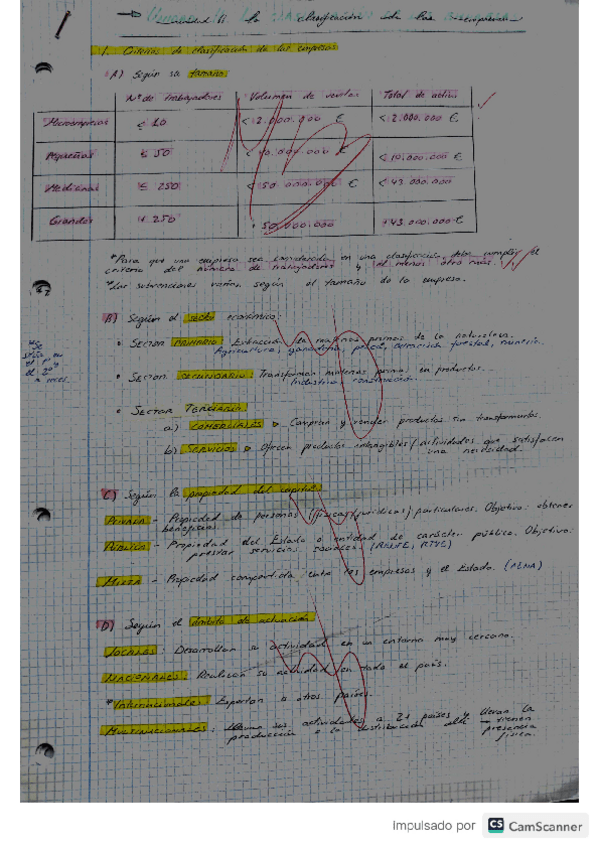 1
Unidad II la clasificación de las empresas
1. Criterios de clasificación de las empresas
A) Según su tamaño
Nº de trabajadores Volumen de ventas Total de activo
Microempresas ≤ 10 < 2.000.000 € < 2.000.000 €
Pequeñas ≤ 50 < 10.000.000 € < 10.000.000 €
Medianas ≤ 250 < 50.000.000 € < 43.000.000
Grandes 250 50.000.000 43.000.000 €
*Para que una empresa sea considerada en una clasificación debe cumplir el
criterio del número de trabajadores y al menos otro más.
*Las subvenciones varían según el tamaño de la empresa.
B) Según el sector económico:
• Sector PRIMARIO: Extracción de materias primas de la naturaleza.
Agricultura, ganadería, pesca, extracción forestal, minería.
• Sector SECUNDARIO: Transforman materias primas en productos.
Industria construcción
• SECTOR TERCIARIO
a) COMERCIALES ▷ Compran y venden productos sin transformarlos.
b) SERVICIOS ▷ Ofrecen productos intangibles/actividades que satisfacen
una necesidad.
el 2º
a veces.
C) Según la propiedad del capital
PRIVADA - Propiedad de personas (físicas/jurídicas) particulares. Objetivo: obtener
beneficios
PÚBLICA - Propiedad del Estado o entidad de carácter público. Objetivo:
prestar servicios sociales. (RENFE, RTVE)
MIXTA - Propiedad compartida entre las empresas y el Estado. (AENA)
D) Según el ámbito de actuación
LOCALES: Desarrollan su actividad en un entorno muy cercano.
NACIONALES: Realizan su actividad en todo el país.
*Internacionales: Exportan a otros países.
MULTINACIONALES: sus actividades a 2+ países y llevan la
producción o la distribución allí → tienen
presencia
física.
Impulsado por CS CamScanner